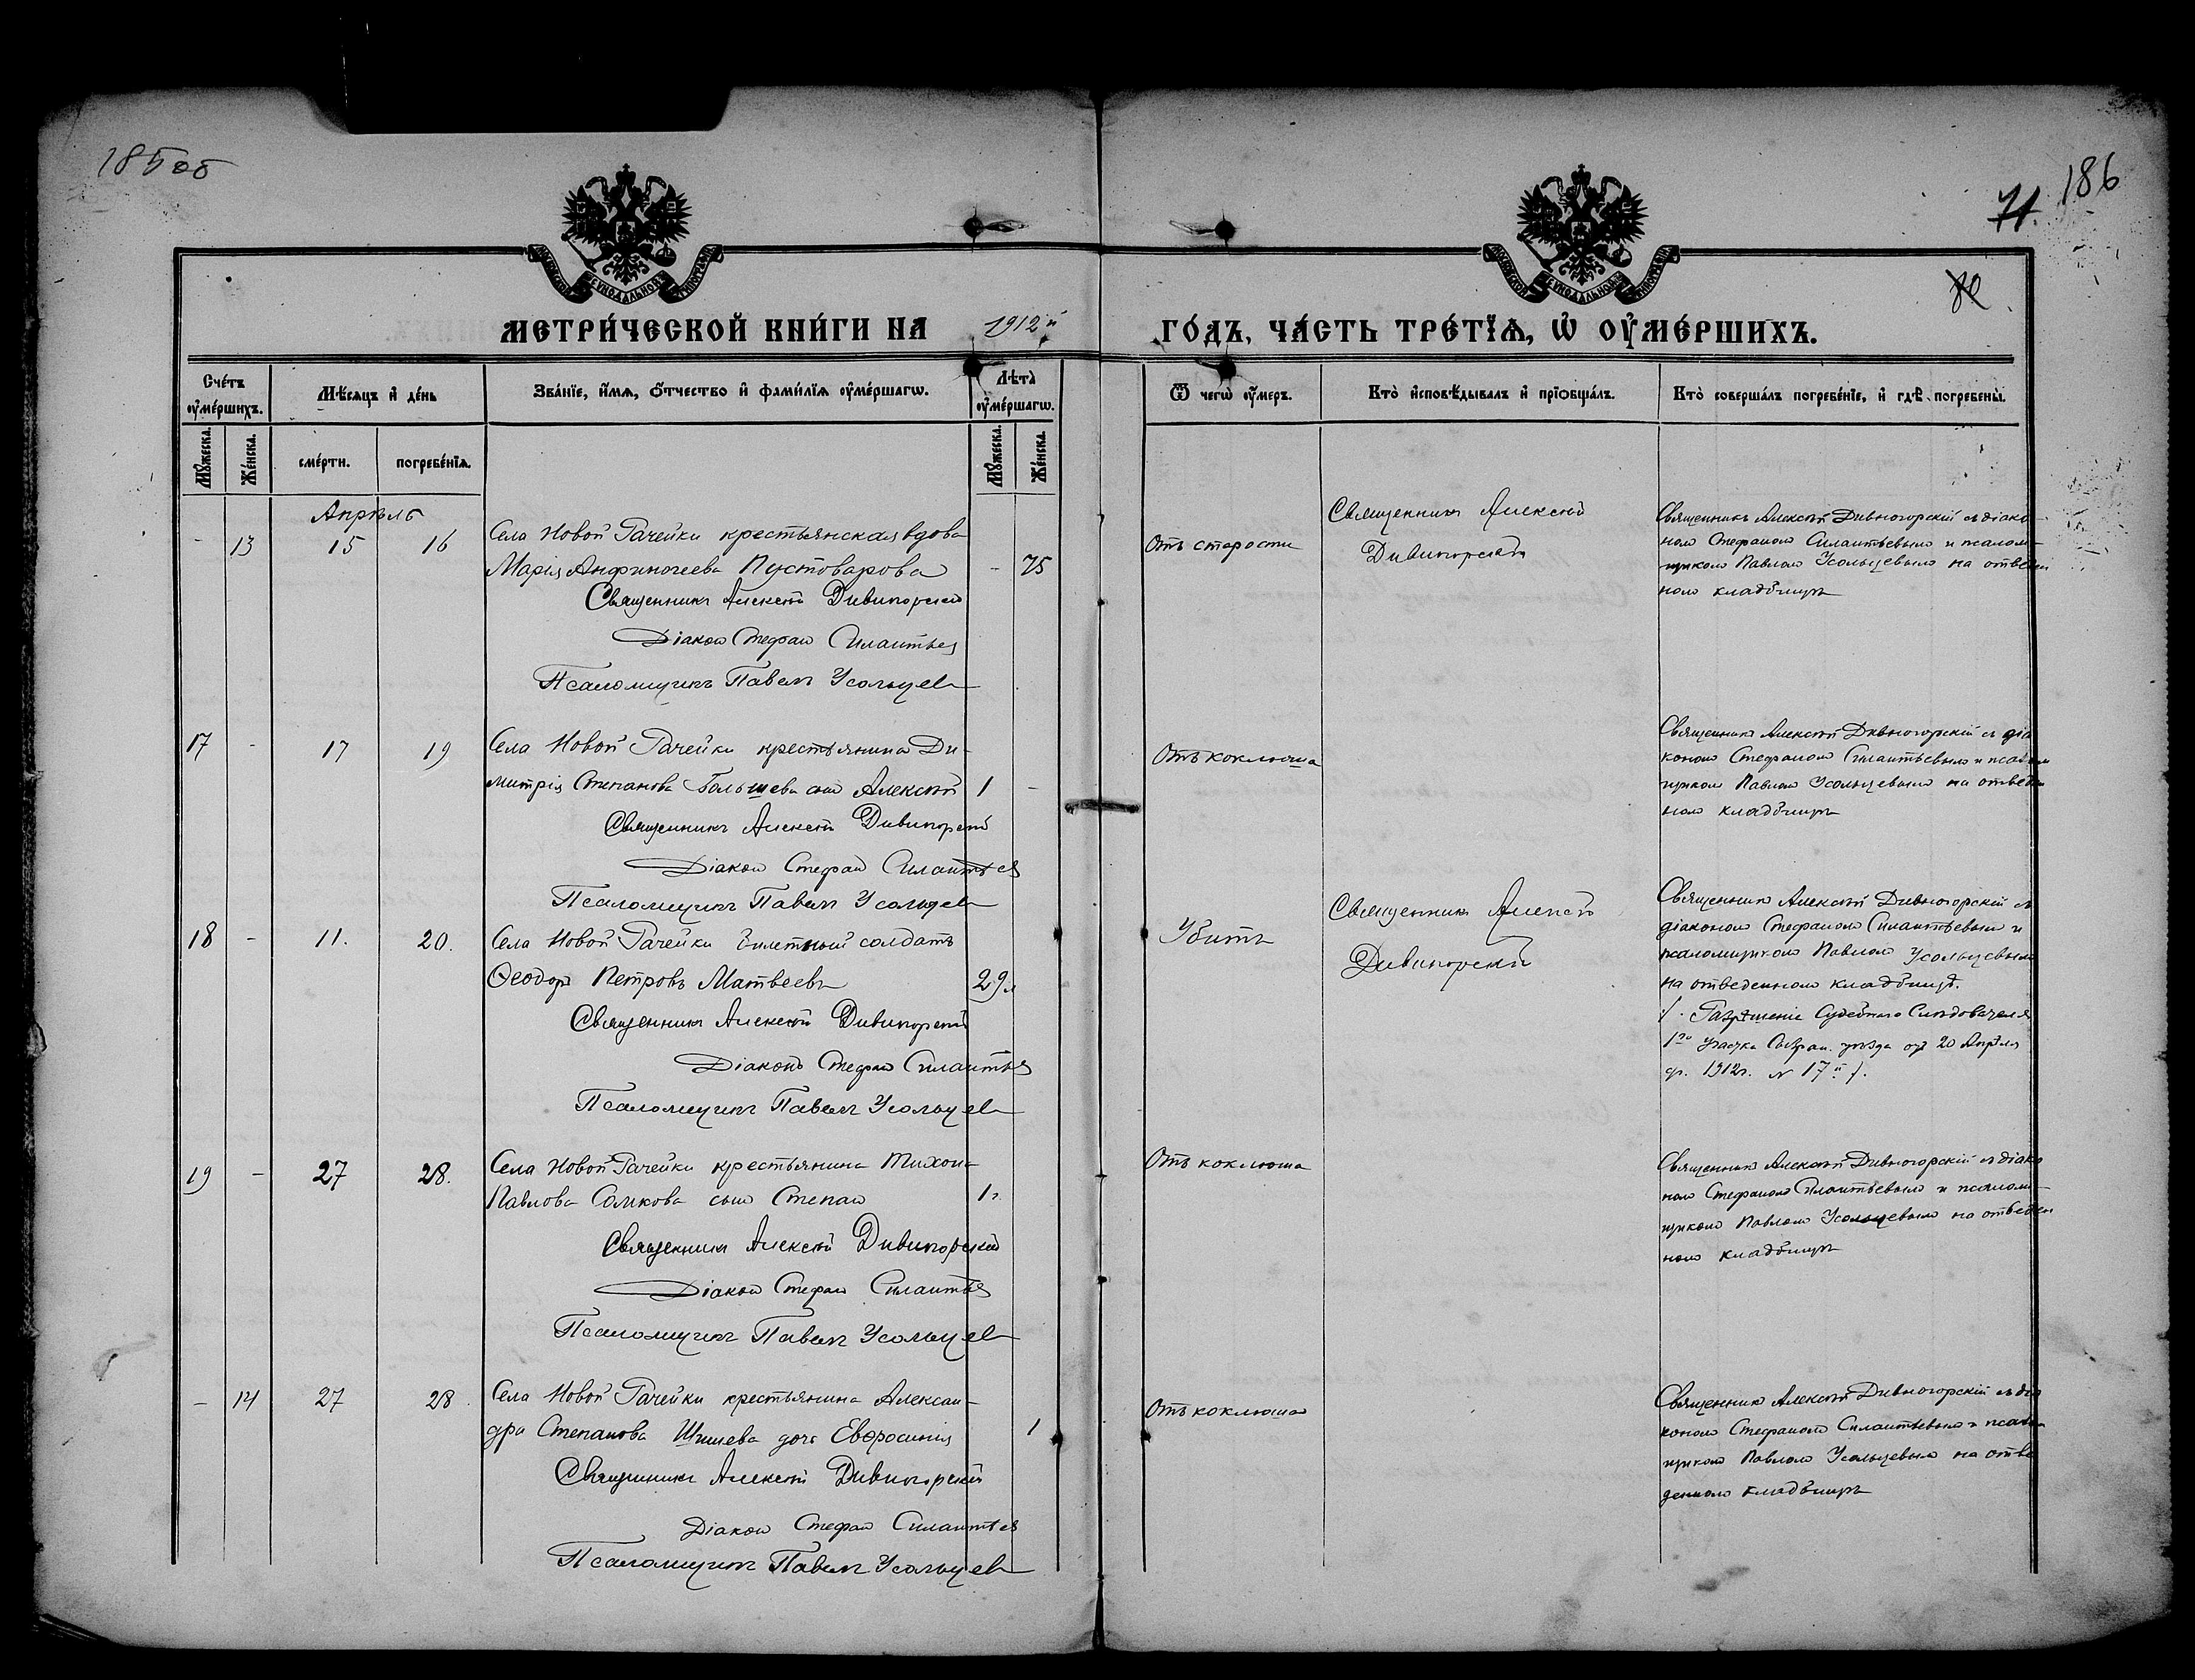 185 об
186
71.
МЕТРИ́ЧЕСКОЙ КНИ́ГИ НА 1912й ГО́ДЪ, ЧА́СТЬ ТРЕ́ТЇѦ, Ѡ ОУ҆МЕ́РШИХЪ.
Сче́тъ оу҆ме́ршихъ.
Мѣ́сяцъ и҆ де́нь
Зва́нїе, и҆́мѧ, ѻ҆́тчество и҆ фами́лїѧ оу҆ме́ршагѡ.
Лѣ̀та оу҆ме́ршагѡ.
Ѿ чегѡ̀ оу҆́меръ.
Кто̀ и҆сповѣ́дывалъ и҆ прїѡбща́лъ.
Кто̀ соверша́лъ погребе́нїе, и҆ гдѣ̀ погребены̀.
Мꙋ́жеска.
Же́нска.
сме́рти.
погребе́нїѧ.
Мꙋ́жеска.
Же́нска.
Апрѣль
- 13 15 16
Села Новой Рачейки крестьянская вдова
Марія Анфиногеева Пустоварова - 75
Священникъ Алексѣй Дивногорскій
Діаконъ Стефанъ Силантьевъ
Псаломщикъ Павелъ Усольцевъ
Отъ старости
Священникъ Алексѣй
Дивногорскій
Священникъ Алексѣй Дивногорскій съ діако-
номъ Стефаномъ Силантьевымъ и псалом-
щикомъ Павломъ Усольцевымъ на отведен
номъ кладбищѣ
17 - 17 19
Села Новой Рачейки крестьянина Ди-
митрія Степанова Большева сынъ Алексѣй 1 -
Священникъ Алексѣй Дивногорскій
Діаконъ Стефанъ Силантьевъ
Псаломщикъ Павелъ Усольцевъ
Отъ коклюша
Священникъ Алексѣй Дивногорскій съ діа
кономъ Стефаномъ Силантьевымъ и псалом
щикомъ Павломъ Усольцевымъ на отведен
номъ кладбищѣ
18 - 11. 20.
Села Новой Рачейки билетный солдатъ
Ѳеодоръ Петровъ Матвеевъ 29л
Священникъ Алексѣй Дивногорскій
Діаконъ Стефанъ Силантьевъ
Псаломщикъ Павелъ Усольцевъ
Убитъ
Священникъ Алексѣй
Дивногорскій
Священникъ Алексѣй Дивногорскій съ
діакономъ Стефаномъ Силантьевымъ и
псаломщикомъ Павломъ Усольцевымъ
на отведенномъ кладбищѣ.
/. Разрѣшеніе Судебнаго Слѣдователя
1го участка Сызран. уѣзда отъ 20 Апрѣля
1912г. № 17й /.
19 - 27 28.
Села Новой Рачейки крестьянина Тихона
Павлова Сомкова сынъ Степанъ 1г.
Священникъ Алексѣй Дивногорскій
Діаконъ Стефанъ Силантьевъ
Псаломщикъ Павелъ Усольцевъ
Отъ коклюша
Священникъ Алексѣй Дивногорскій съ діако
номъ Стефаномъ Силантьевымъ и псалом-
щикомъ Павломъ Усольцевымъ на отведен
номъ кладбищѣ
- 14 27 28.
Села Новой Рачейки крестьянина Алексан-
дра Степанова Шишева дочь Евфросинія 1
Священникъ Алексѣй Дивногорскій
Діаконъ Стефанъ Силантьевъ
Псаломщикъ Павелъ Усольцевъ
Отъ коклюша
Священникъ Алексѣй Дивногорскій съ діа
кономъ Стефаномъ Силантьевымъ и псалом
щикомъ Павломъ Усольцевымъ на отве
денномъ кладбищѣ